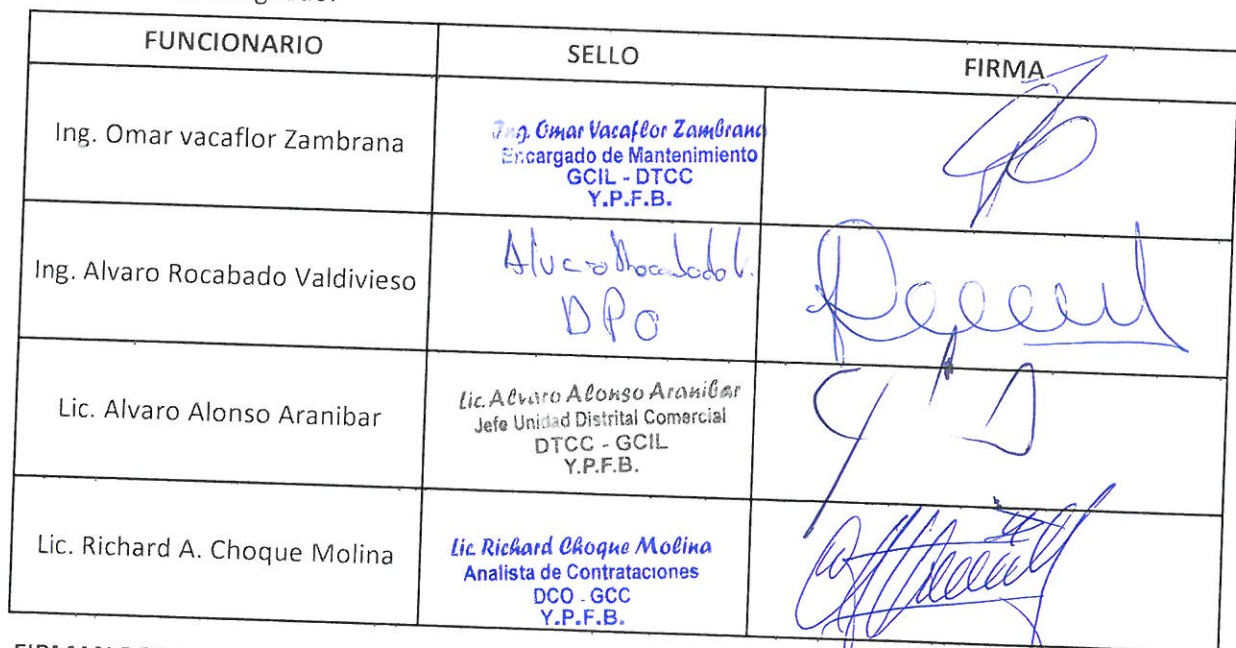 FUNCIONARIO SELLO FIRMA
Ing. Omar vacaflor Zambrana
Ing. Omar Vacaflor Zambrana
Encargado de Mantenimiento
GCIL - DTCC
Y.P.F.B.
Ing. Alvaro Rocabado Valdivieso
Alvaro Rocabado V.
DPO
Lic. Alvaro Alonso Aranibar
Lic. Alvaro Alonso Aranibar
Jefe Unidad Distrital Comercial
DTCC - GCIL
Y.P.F.B.
Lic. Richard A. Choque Molina
Lic. Richard Choque Molina
Analista de Contrataciones
DCO - GCC
Y.P.F.B.